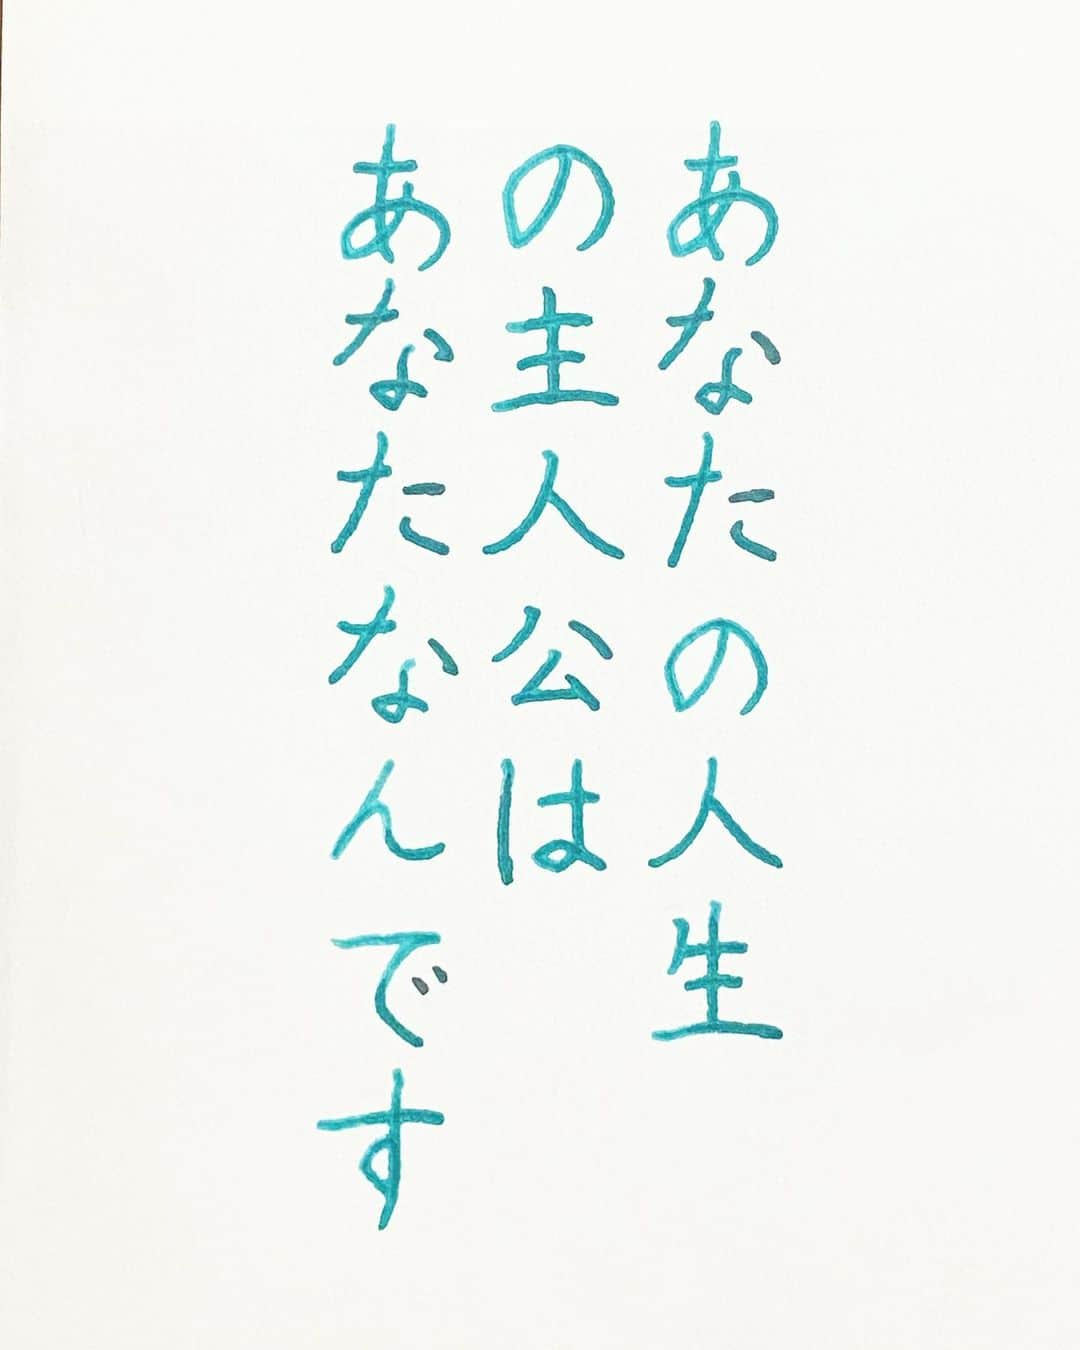 あなたの人生
の主人公は
あなたなんです